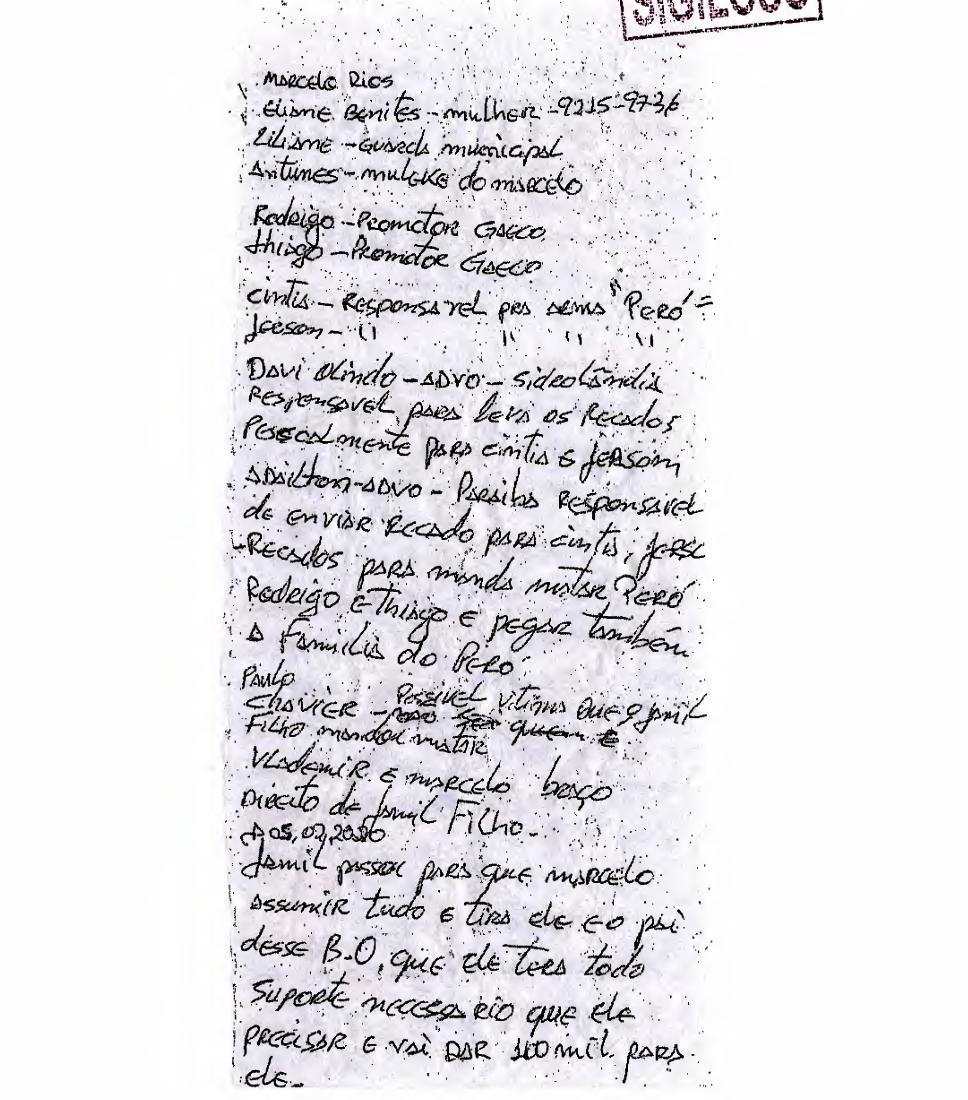 SIGILOSO
Marcelo Rios
Eliane Benites - mulher - 9215-9736
Liliane - Guarda municipal
Antunes - muleke do marcelo
Rodrigo - Promotor GAECO
thiago - Promotor GAECO
cintia - Responsavel pra arma "Peró" =
Jerson - " " " "
Davi Olindo - ADVO - Sidrolândia
Responsavel para leva os Recados
Pessoalmente para cintia e Jersom
ADailton - ADVO - Paraiba Responsavel
de enviar Recado para cintia, Jerso
Recados para manda matar Peró
Rodrigo e Thiago e pegar também
a Familia do Peró
Paulo
Chavier - Possivel vitima que o Jamil
Filho mandou matar
Vlademir e marcelo braço
Direito de Jamil Filho -
05,02,2020
Jamil passou para que marcelo
assumir tudo e tira ele e o pai
desse B.O, que ele tera todo
suporte necessario que ele
precisar e vai DAR 100 mil para
ele -